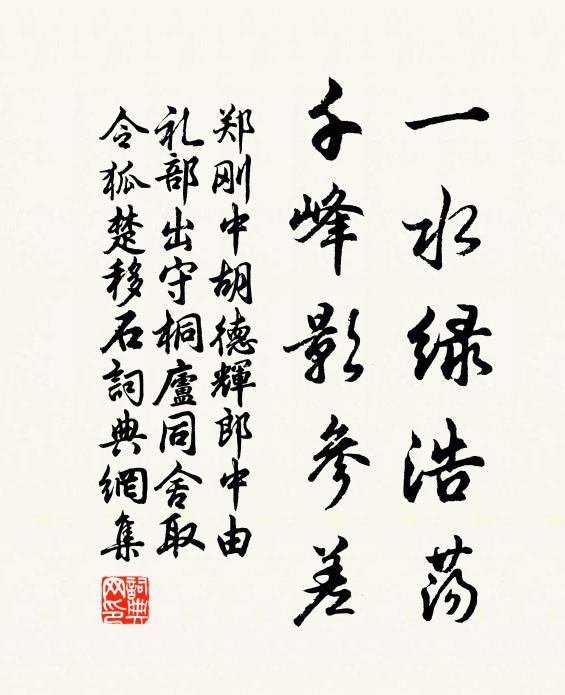 一水绿浩荡
千峰影參差
郑刚中胡德輝郎中由
礼部出守桐廬同舍取
令狐楚移石詞典網集
詞典網印